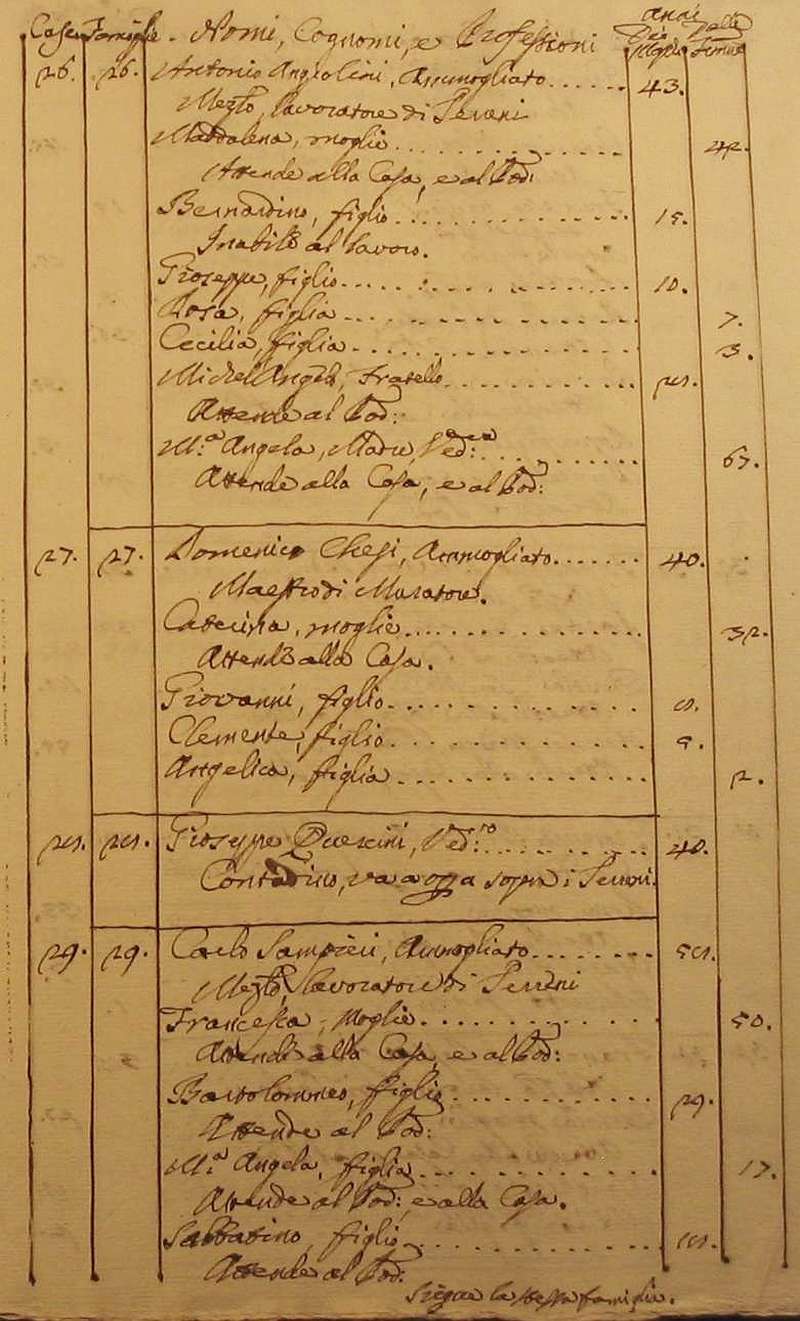 Case Famiglie. Nomi, Cognomi, e Professioni Anni Degli Uomini Delle Femine
26. 26. Antonio Angiolini, Ammogliato...... 43.
Mezto, lavoratore di Terreni
Maddalena, moglie............ 42.
Attende alla Casa, e al Pod:
Bernardino, figlio............... 15.
Inabile al lavoro.
Gioseppe, figlio............... 10.
Rosa, figlia............... 7.
Cecilia, figlia............... 3.
Michel Angelo, Fratello............ 28.
Attende al Pod:
M.a Angela, Madre, Ved:a.......... 67.
Attende alla Casa, e al Pod:
27. 27. Domenico Chesi, Ammogliato....... 40.
Maestro di Muratore.
Catterina, moglie............ 32.
Attende alla Casa.
Giovanni, figlio............ 8.
Clemente, figlio............ 5.
Angelica, figlia............ 2.
28. 28. Gioseppe Guescini, Ved:ro.......... 40.
Contadino, va a opra sopra i Terreni.
29. 29. Carlo Sampieri, Ammogliato........ 58.
Mezto, lavoratore di Terreni
Francesca, Moglie........... 50.
Attende alla Casa, e al Pod:
Bartolommeo, figlio........... 29.
Attende al Pod:
M.a Angela, figlia............ 17.
Attende al Pod: e alla Casa.
Sabbatino, figlio............ 18.
Attende al Pod:
Siegue la stessa famiglia.